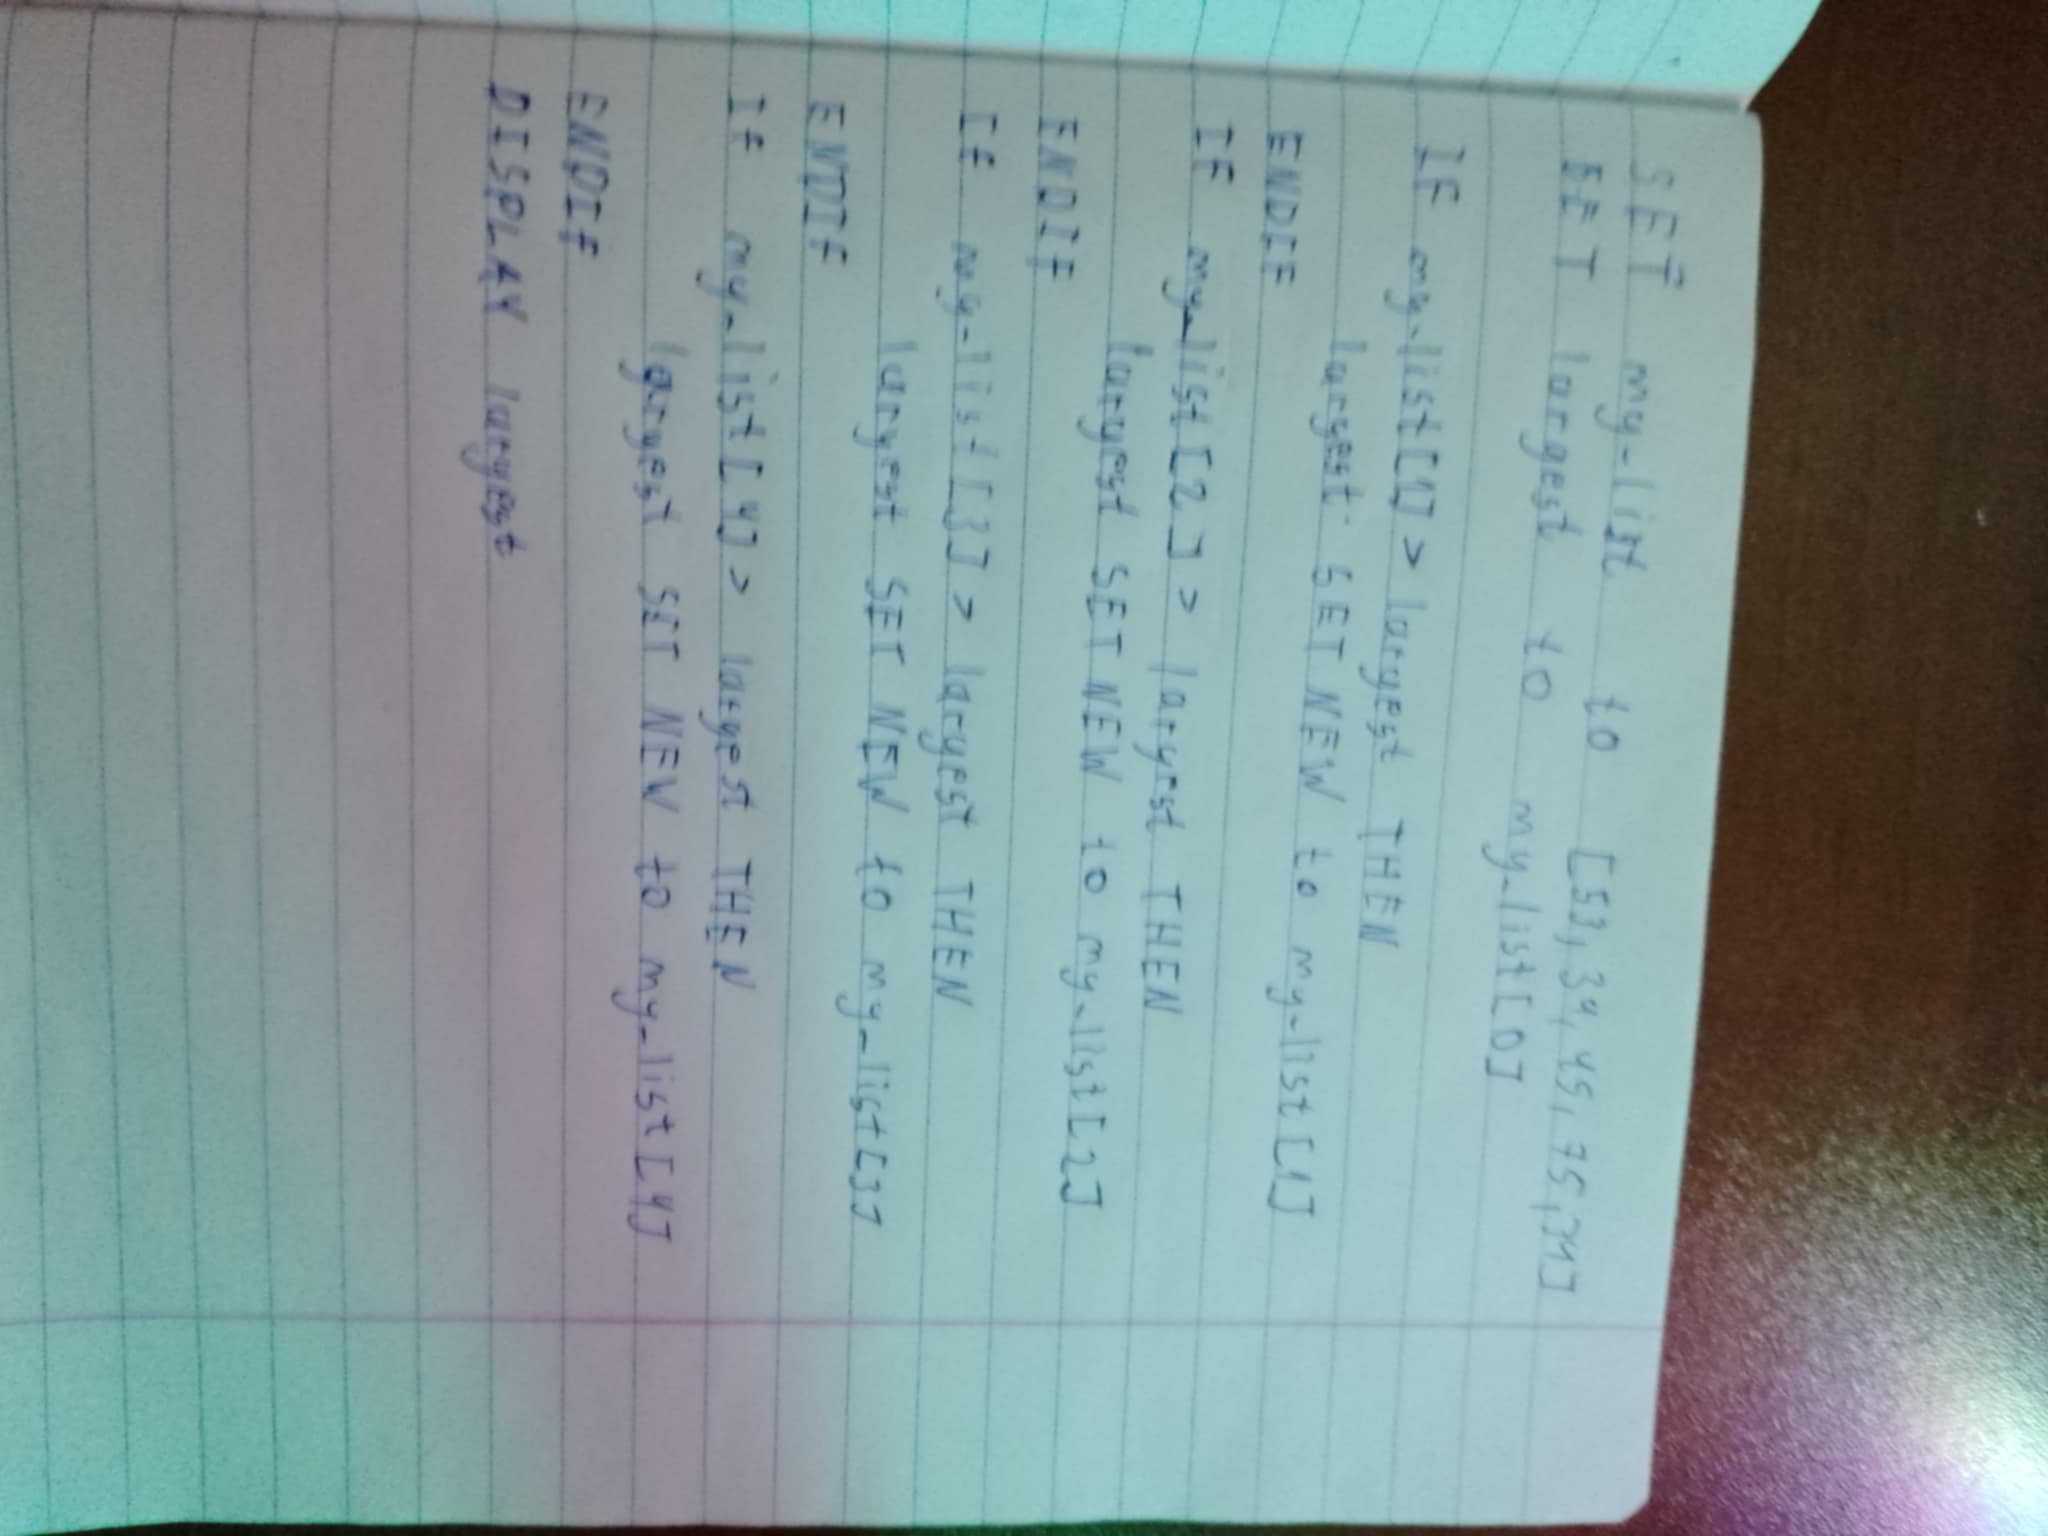 SET my-list to [53, 34, 45, 75, 24]
SET largest to my-list[0]
IF my-list[1] > largest THEN
largest SET NEW to my-list[1]
ENDIF
IF my-list[2] > largest THEN
largest SET NEW to my-list[2]
ENDIF
IF my-list[3] > largest THEN
largest SET NEW to my-list[3]
ENDIF
IF my-list[4] > largest THEN
largest SET NEW to my-list[4]
ENDIF
DISPLAY largest